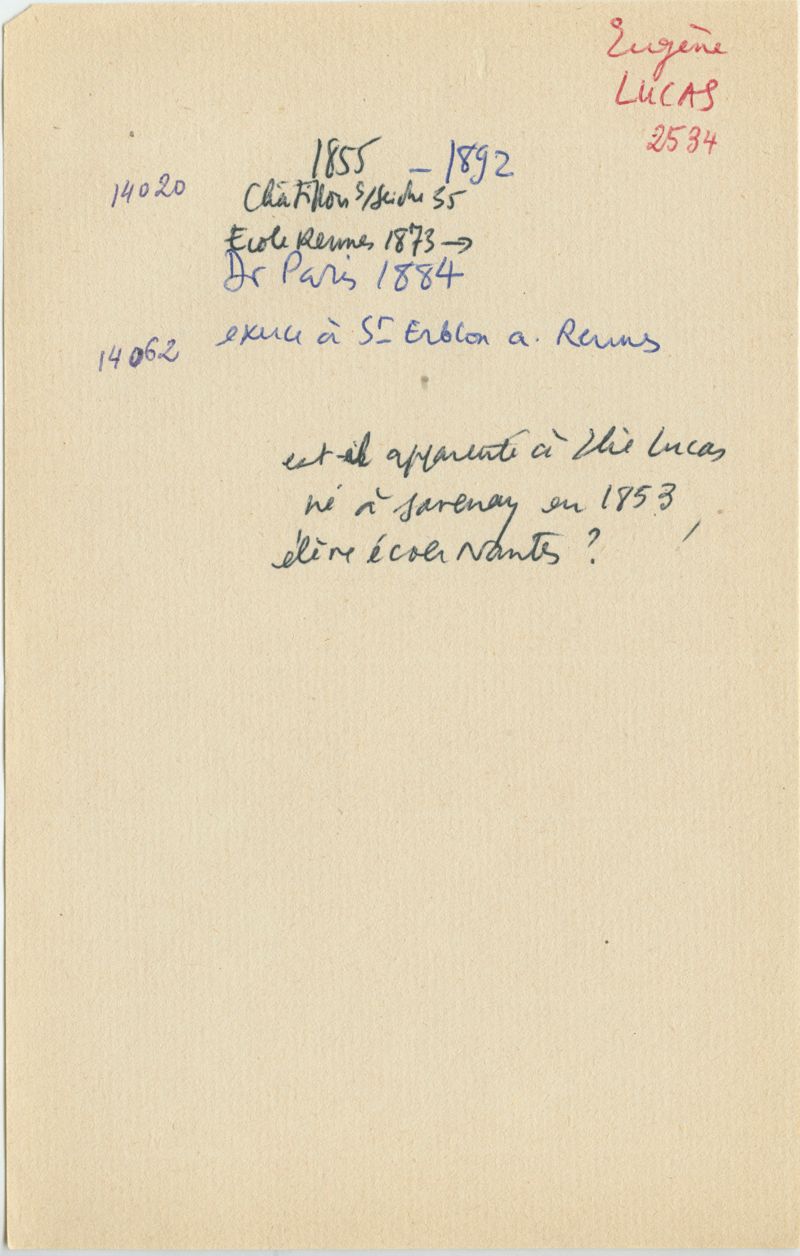 Eugène
LUCAS
2534
1855 - 1892
14020 Châtillon s/Seiche 35
Ecole Rennes 1873 →
Dr Paris 1884
14062 exerce à St Erblon a. Rennes
est-il apparenté à Elie Lucas
né à Savenay en 1853,
élève école Nantes ?